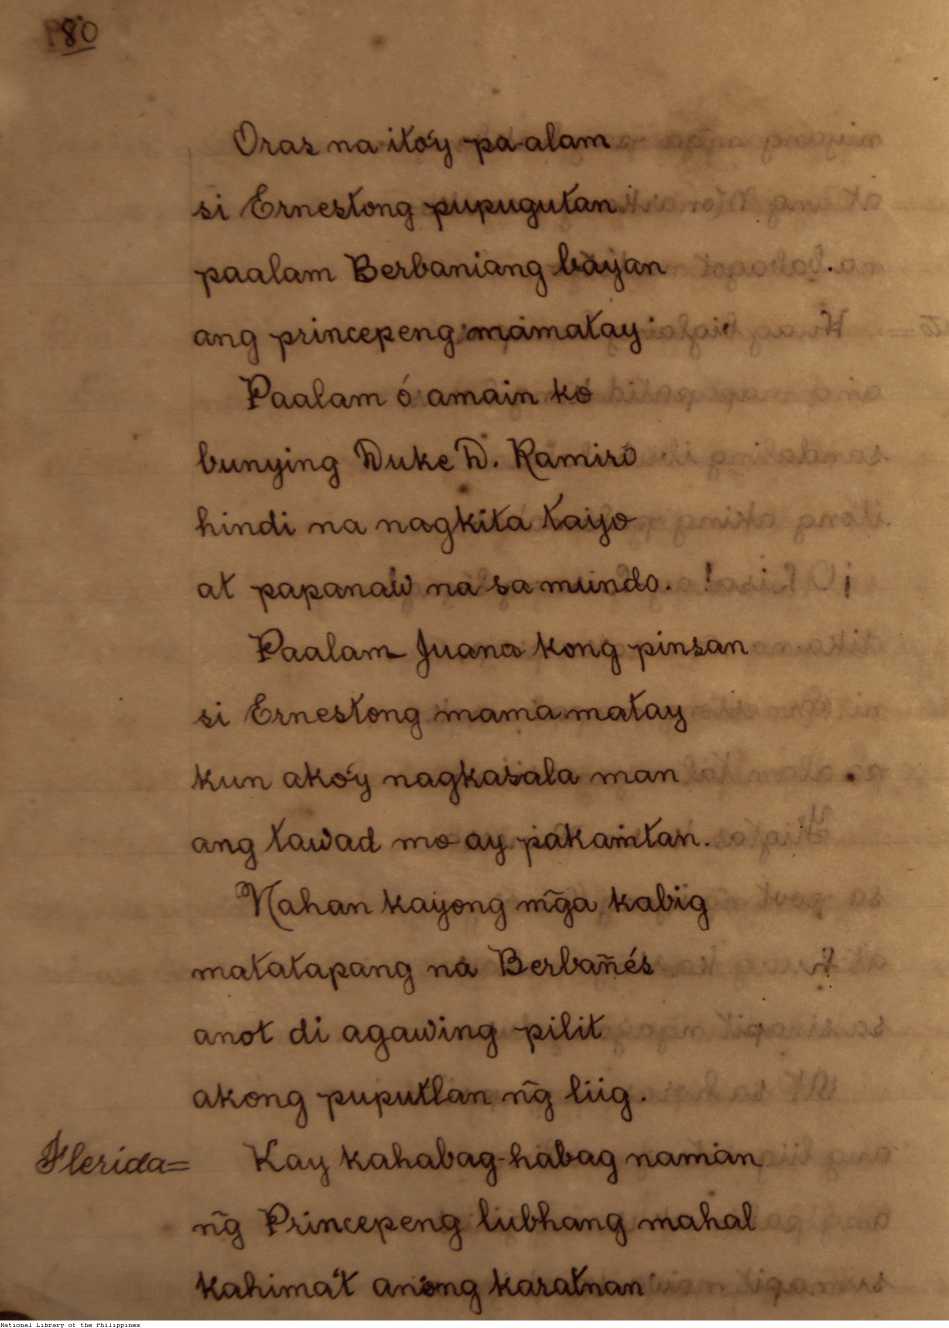 80
Oras na ito'y pa-alam
si Ernestong pupugutan
paalam Berbaniang bayan
ang princepeng mámatay.
Paalam ó amain ko
bunying Duke D. Ramiro
hindi na nagkita tayo
at papanaw na sa mundo. !
Paalam Juana kong pinsan
si Ernestong mamamatay
kun ako'y nagkasala man
ang tawad mo ay pakamtan.
Nahan kayong m̃ga kabig
matatapang na Berbañés
anot di agawing pilit
akong puputlan n̄g liig.
Flerida= Kay kahabag-habag naman
n̄g Princepeng lubhang mahal
kahima't anong karatnan
National Library of the Philippines